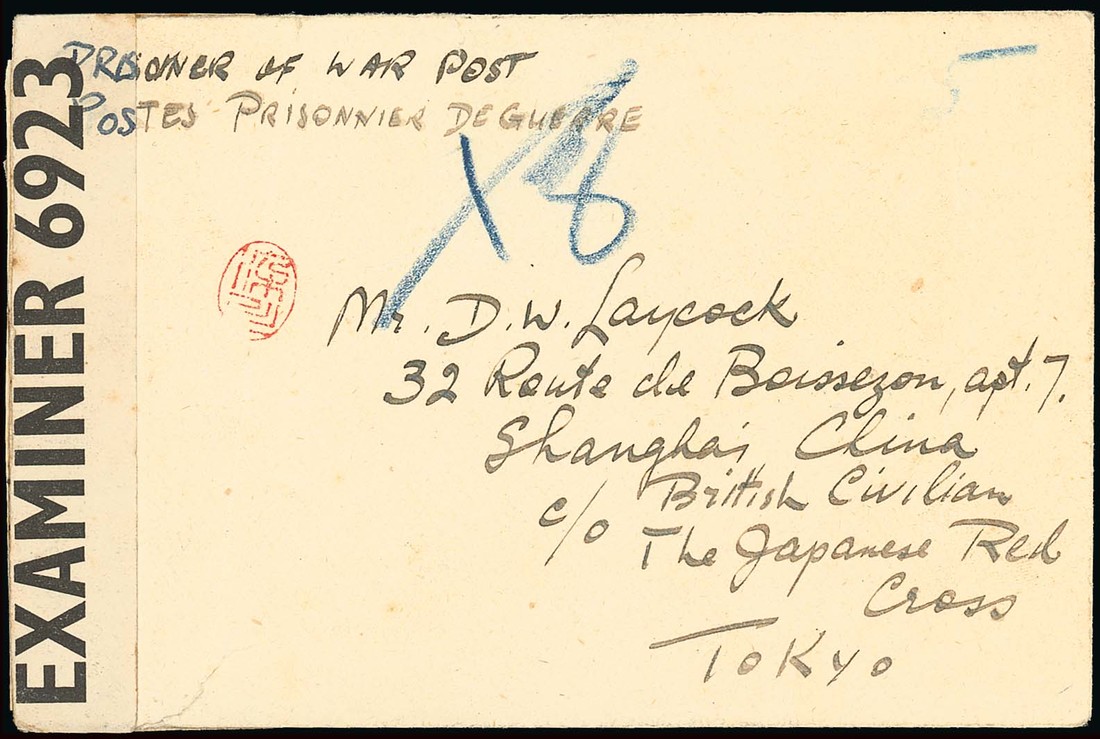 EXAMINER 6923
PRISONER OF WAR POST
POSTES PRISONNIER DE GUERRE
X8
5
Mr. D.W. Laycock
32 Route de Boissezon, apt. 7.
Shanghai China
British Civilian
c/o The Japanese Red
Cross
TOKYO